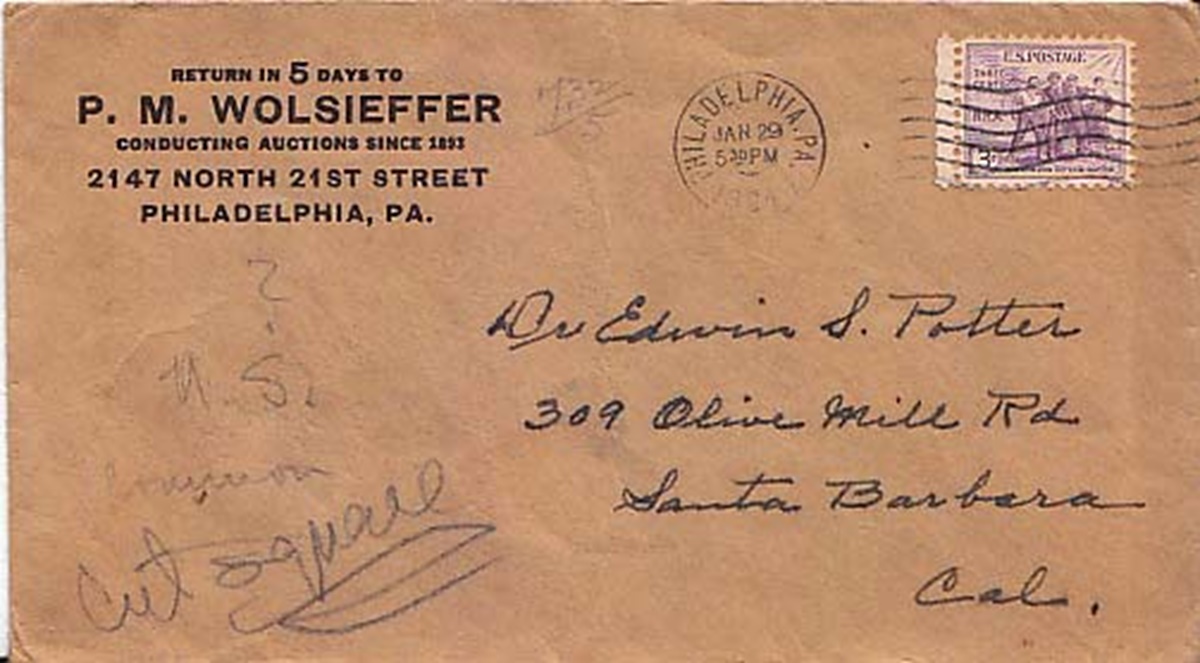 RETURN IN 5 DAYS TO
P. M. WOLSIEFFER
CONDUCTING AUCTIONS SINCE 1893
2147 NORTH 21ST STREET
PHILADELPHIA, PA.
PHILADELPHIA, PA.
JAN 29
5 30 PM
U.S. POSTAGE
3
Dr Edwin S. Potter
309 Olive Mill Rd
Santa Barbara
Cal.
?
U. S.
Common
Cut Square